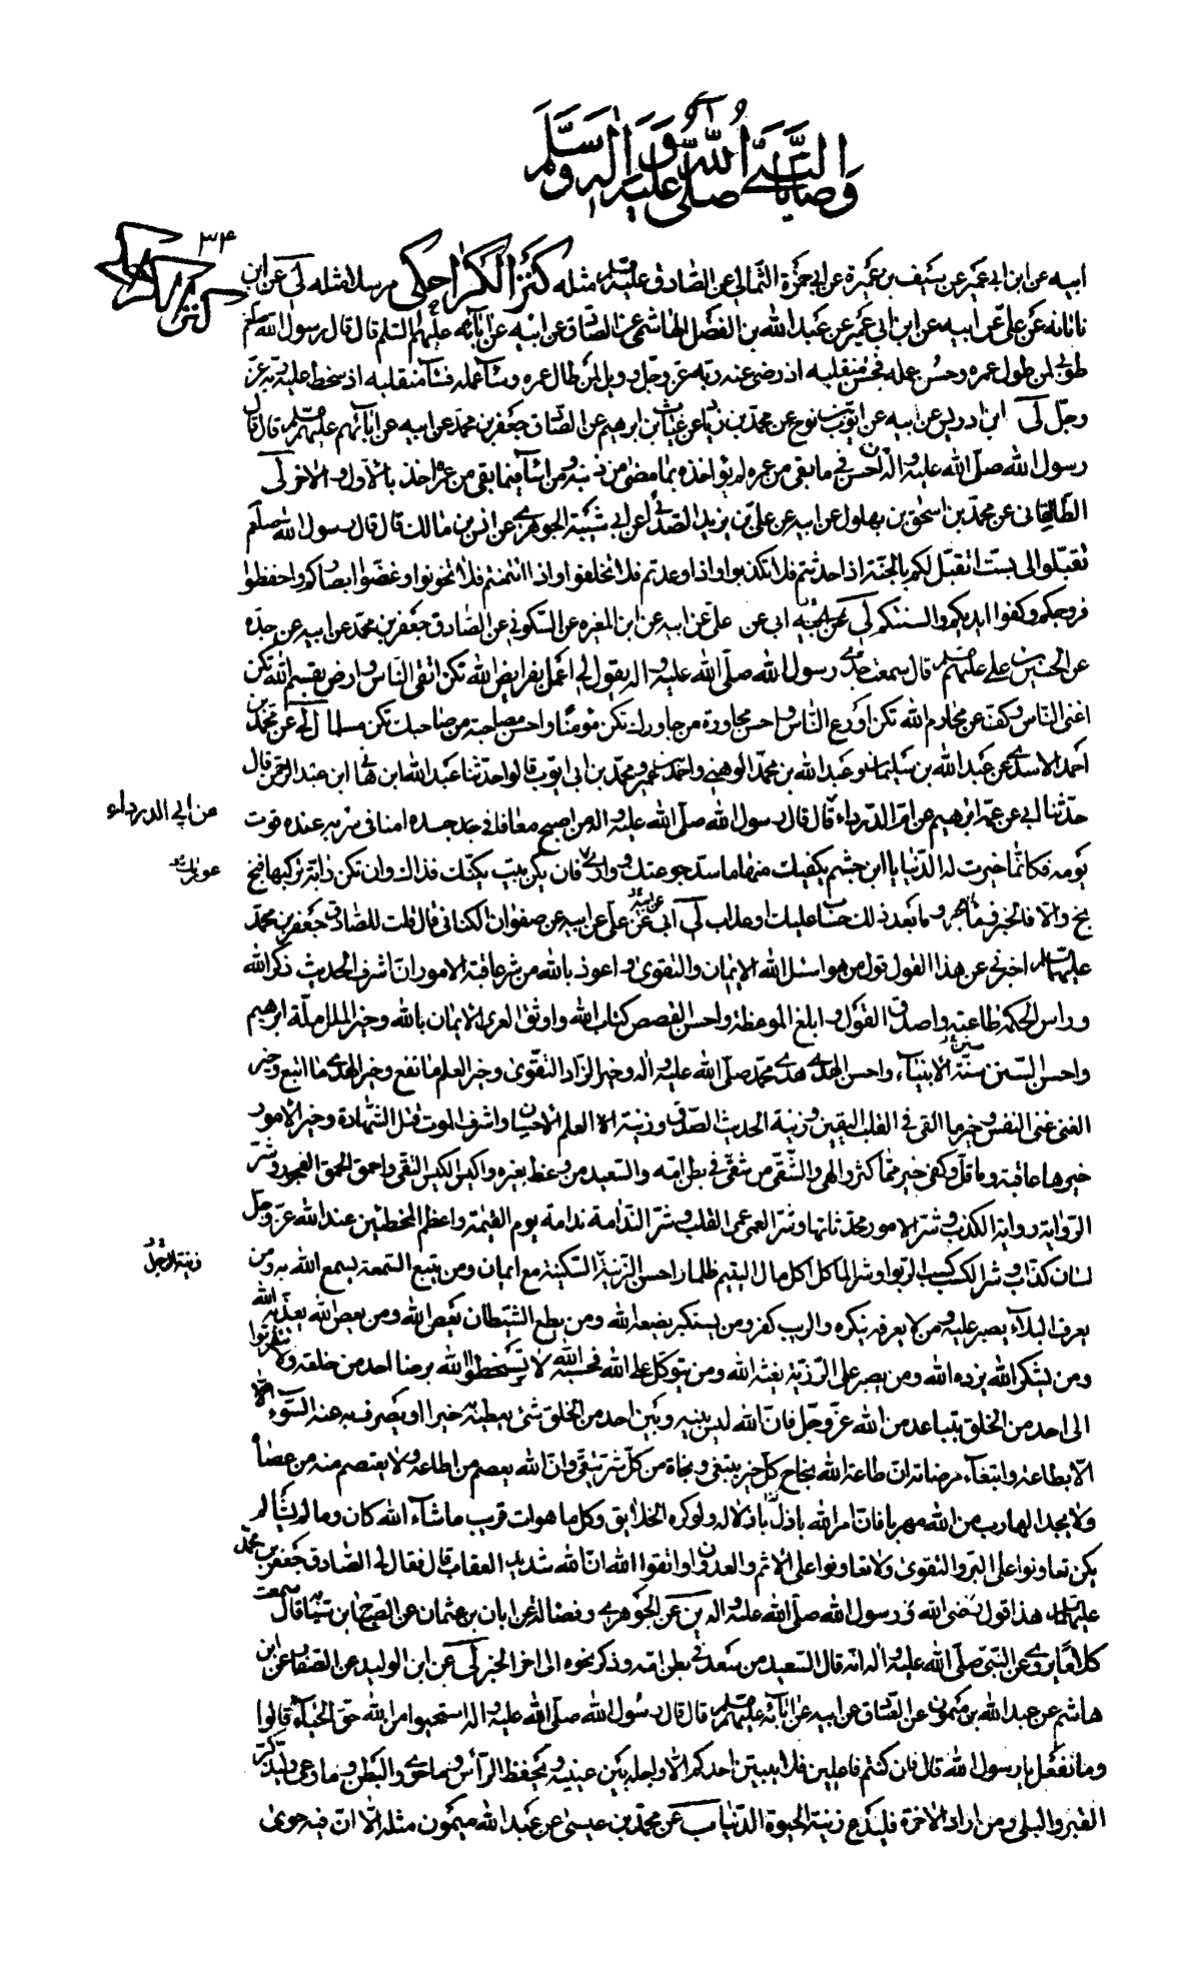 وصايا النبي صلى الله عليه وآله وسلم
٣٤
ابيه عن ابن ابى عمير عن سيف بن عميرة عن ابى حمزة الثمالى عن الصادق عليه السلم مثله كنز الكراجكى مرسلا مثله لى عن ابن
ناتانه عن على عن ابيه عن ابن ابى عمير عن عبد الله بن الفضل الهاشمى عن الصادق عن ابيه عن ابآئه عليهم السلم قال قال رسول الله صلعم
طوبى لمن طول عمره وحسن عمله فحسن منقلبه اذ رضى عنه ربه عز وجل وويل لمن طال عمره وسآء عمله فسآء منقلبه اذ سخط عليه ربه عز
وجل لى ابن ادريس عن ابيه عن ايوب بن نوح عن محمد بن زياد عن غياث بن ابرهيم عن الصادق جعفر بن محمد عن ابيه عن ابآئهم عليهم السلم قال قال
رسول الله صلى الله عليه واله من احسن فى ما بقى من عمره لم يؤاخذه بما مضى من ذنبه ومن اسآء فيما بقى من عمره اخذ بالاول والاخر لى
الطالقانى عن محمد بن اسحق بن بهلول عن ابيه عن على بن يزيد الصدائى عن ابى شيبة الجوهرى عن انس بن مالك قال قال رسول الله صلعم
تقبلوا الى بست اتقبل لكم بالجنة اذا حدثتم فلا تكذبوا واذا وعدتم فلا تخلفوا واذا ائتمنتم فلا تخونوا وغضوا ابصاركم واحفظوا
فروجكم وكفوا ايديكم والسنتكم لى ابى عن على عن ابيه عن ابن المغيره عن السكونى عن الصادق جعفر بن محمد عن ابيه عن جده
عن الحسين بن على عليهم السلم قال سمعت جدى رسول الله صلى الله عليه واله يقول لى اعمل بفرايض الله تكن اتقى الناس وارض بقسم الله تكن
اغنى الناس وكف عن محارم الله تكن اورع الناس واحسن مجاورة من جاورك تكن مؤمنا واحسن مصاحبة من صاحبك تكن مسلما لى عن محمد بن
احمد الاسدى عن عبد الله بن سليمان وعبد الله بن محمد الوهبى واحمد بن عمير ومحمد بن ابى ايوب قالوا حدثنا عبد الله ابن هانى ابن عبد الرحمن قال
حدثنا ابى عن عمه ابرهيم عن ام الدرداء قال قال رسول الله صلى الله عليه واله من اصبح معافا فى جسده امنا فى سربه عنده قوت
عن ابى الدرداء
يومه فكانما خيرت له الدنيا يا ابن جشم يكفيك منها ما سد جوعتك ووارى فان يكن بيت يكنك فذاك وان تكن دابة تركبها فبخ
عورتك
بخ والا فالخبز وماء الجر وما بعد ذلك حساب عليك او عذاب لى ابى عن على عن ابيه عن صفوان الكنانى قال قلت للصادق جعفر بن محمد
عليهما السلم اخبرنى عن هذا القول قول من هو اسئل الله الايمان والتقوى واعوذ بالله من شر عاقبة الامور ان اشرف الحديث ذكر الله
وراس الحكمة طاعته واصدق القول وابلغ الموعظة واحسن القصص كتاب الله واوثق العرى الايمان بالله وخير الملل ملة ابرهيم
واحسن السنن سنة الانبيآء واحسن الهدى هدى محمد صلى الله عليه واله وخير الزاد التقوى وخير العلم ما نفع وخير الهدى ما اتبع وخير
الغنى غنى النفس وخير ما القى فى القلب اليقين وزينة الحديث الصدق وزينة العلم الاحسان واشرف الموت قتل الشهادة وخير الامور
خيرها عاقبة وما قل وكفى خير مما كثر والهى والشقى من شقى فى بطن امه والسعيد من وعظ بغيره واكيس الكيس التقى واحمق الحمق الفجور وشر
الرواية رواية الكذب وشر الامور محدثاتها وشر العمى عمى القلب وشر الندامة ندامة يوم القيمة واعظم المخطئين عند الله عز وجل
لسان كذاب وشر الكسب كسب الربوا وشر الماكل اكل مال اليتيم ظلما واحسن الزينة السكينة مع ايمان ومن يتبع السمعة يسمع الله به ومن
زينة الرجل
يعرف البلآء يصبر عليه ومن لا يعرفه ينكره والريب كفر ومن يستكبر يضعه الله ومن يطع الشيطان يعص الله ومن يعص الله يعذبه الله
ومن يشكر الله يزده الله ومن يصبر على الرزية يغثه الله ومن يتوكل على الله فحسبه الله لا تسخطوا الله برضا احد من خلقه ولا تتقربوا
الى احد من الخلق بتباعد من الله عز وجل فان الله ليس بينه وبين احد من الخلق شئ يعطيه به خيرا او يصرف به عنه السوء الا
الا بطاعته وابتغآء مرضاته ان طاعة الله نجاح كل خير يبتغى ونجاة من كل شر يتقى وان الله يعصم من اطاعه ولا يعتصم منه من عصاه
ولا يجد الهارب من الله مهربا فان امر الله نازل باذلاله ولو كره الخلايق وكل ما هو ات قريب ما شآء الله كان وما لم يشآء لم
يكن تعاونوا على البر والتقوى ولا تعاونوا على الاثم والعدوان واتقوا الله ان الله شديد العقاب قال فقال لى الصادق جعفر بن محمد
عليهما السلم هذا قول رسول الله صلى الله عليه واله ين عن الجوهرى وفضالة عن ابان بن عثمان عن الصباح ابن سيابة قال سمعت
كلاما يروى عن النبى صلى الله عليه واله انه قال السعيد من سعد فى بطن امه وذكر نحوه الى اخر الخبر لى عن ابن الوليد عن الصفار عن ابن
هاشم عن عبد الله بن ميمون عن الصادق عن ابيه عن ابآئه عليهم السلم قال قال رسول الله صلى الله عليه واله استحيوا من الله حق الحيآء قالوا
وما نفعل يا رسول الله قال فان كنتم فاعلين فلا يبيتن احدكم الا واجله بين عينيه وليحفظ الرأس وما حوى والبطن وما وعى وليذكر
القبر والبلى ومن اراد الاخرة فليدع زينة الحيوة الدنيا ب عن محمد بن عيسى عن عبد الله ميمون مثله الا ان فيه حوى